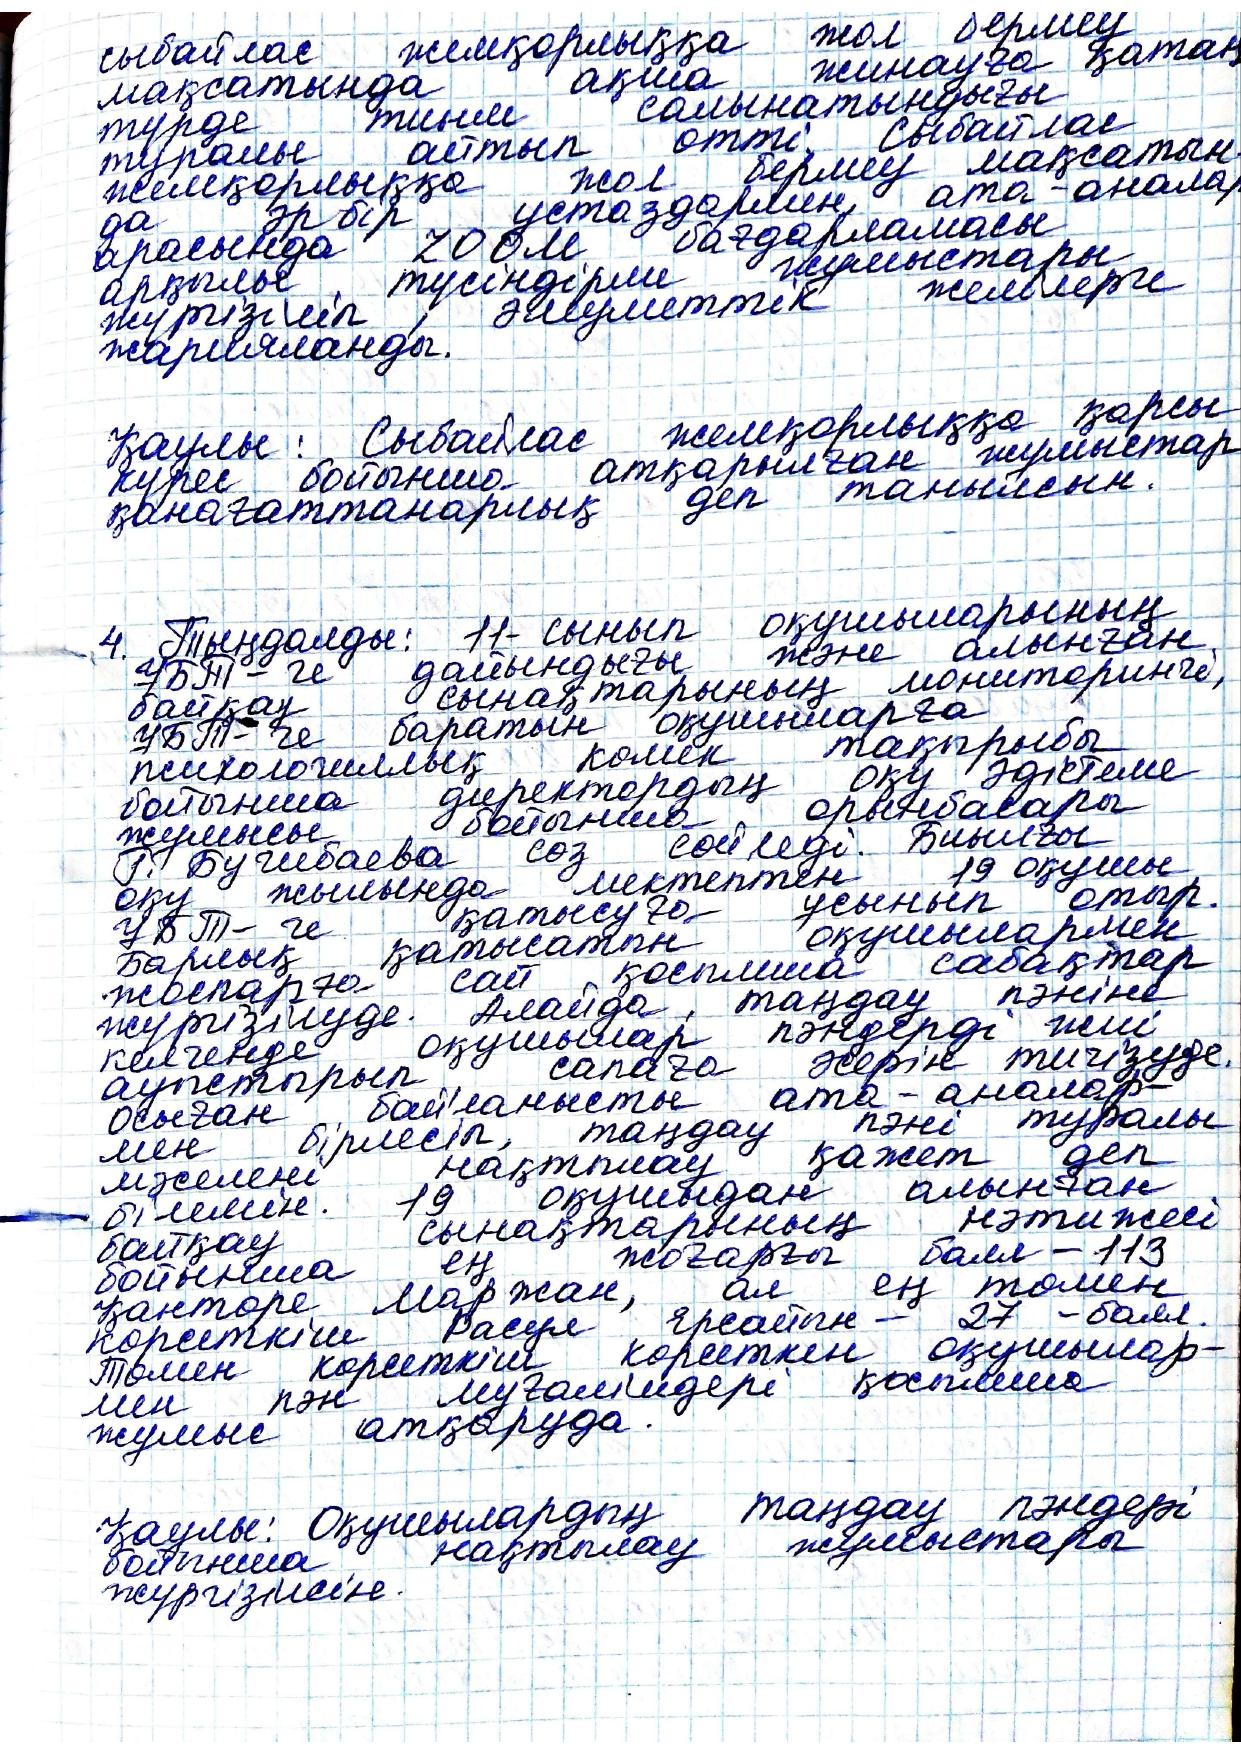 сыбайлас жемқорлыққа жол бермеу
мақсатында ақша жинауға қатаң
түрде тиым салынатындығы
туралы айтып өтті. Сыбайлас
жемқорлыққа жол бермеу мақсатын-
да әрбір ұстаздармен, ата-аналар
арасында ZOOM бағдарламасы
арқылы түсіндірме жұмыстары
жүргізіліп, әлеуметтік желілерге
жарияланды.
Қаулы: Сыбайлас жемқорлыққа қарсы
күрес бойынша атқарылған жұмыстар
қанағаттанарлық деп танылсын.
4. Тыңдалды: 11-сынып оқушыларының
ҰБТ-ге дайындығы және алынған
байқау сынақтарының мониторингі,
ҰБТ-ге баратын оқушыларға
психологиялық көмек тақырыбы
бойынша директордың оқу әдістеме
жұмысы бойынша орынбасары
Г. Бугибаева сөз сөйледі. Биылғы
оқу жылында мектептен 19 оқушы
ҰБТ-ге қатысуға ұсынып отыр.
Барлық қатысатын оқушылармен
жоспарға сай қосымша сабақтар
жүргізілуде. Алайда, таңдау пәніне
келгенде оқушылар пәндерді жиі
ауыстырып сапаға әсерін тигізуде.
Осыған байланысты ата-аналар-
мен бірлесіп, таңдау пәні туралы
мәселені нақтылау қажет деп
білемін. 19 оқушыдан алынған
байқау сынақтарының нәтижесі
бойынша ең жоғарғы балл - 113
Қантөре Маржан, ал ең төмен
көрсеткіш Расул Ерсайын - 27 -балл.
Төмен көрсеткіш көрсеткен оқушылар-
мен пән мұғалімдері қосымша
жұмыс атқаруда.
Қаулы: Оқушылардың таңдау пәндері
бойынша нақтылау жұмыстары
жүргізілсін.